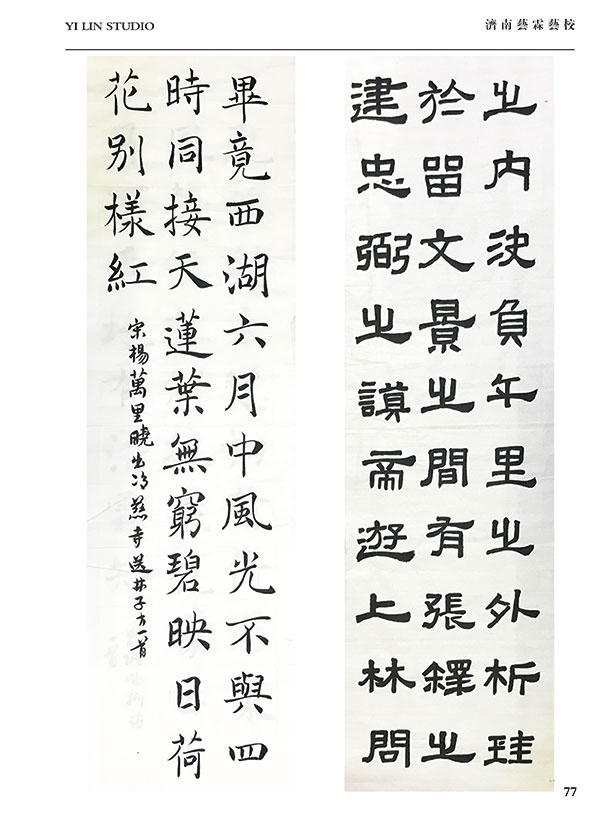 YI LIN STUDIO
濟南藝霖藝校
之內決負午里之外析珪
於留文景之間有張釋之
建忠弼之謨帝遊上林問
畢竟西湖六月中風光不與四
時同接天蓮葉無窮碧映日荷
花別樣紅
宋楊萬里曉出淨慈寺送林子方一首
77